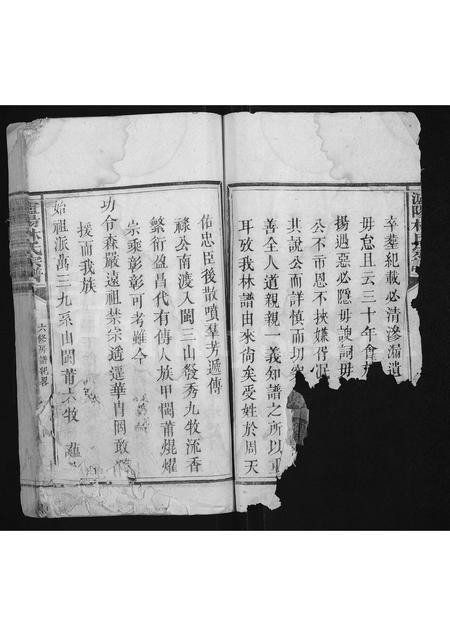 幸羣紀載必清滲漏遺
毋怠且云三十年會
揚過惡必隱毋諛詞毋
公不市恩不挾嫌
其說公而詳慎而切
善全人道親親一義知譜之所以
耳攷我林譜由來尙矣受姓於周天
佑忠臣後散噴羣芳遞傳
祿公南渡入閩三山發秀九牧流香
繁衍盈昌代有傳人族甲閩莆焜燿
宗乘彰彰可考難今
功令森嚴遠祖禁宗遙遥華冑罔敢
援而我族
始祖派萬三九系由閩莆六牧 蘊
六修